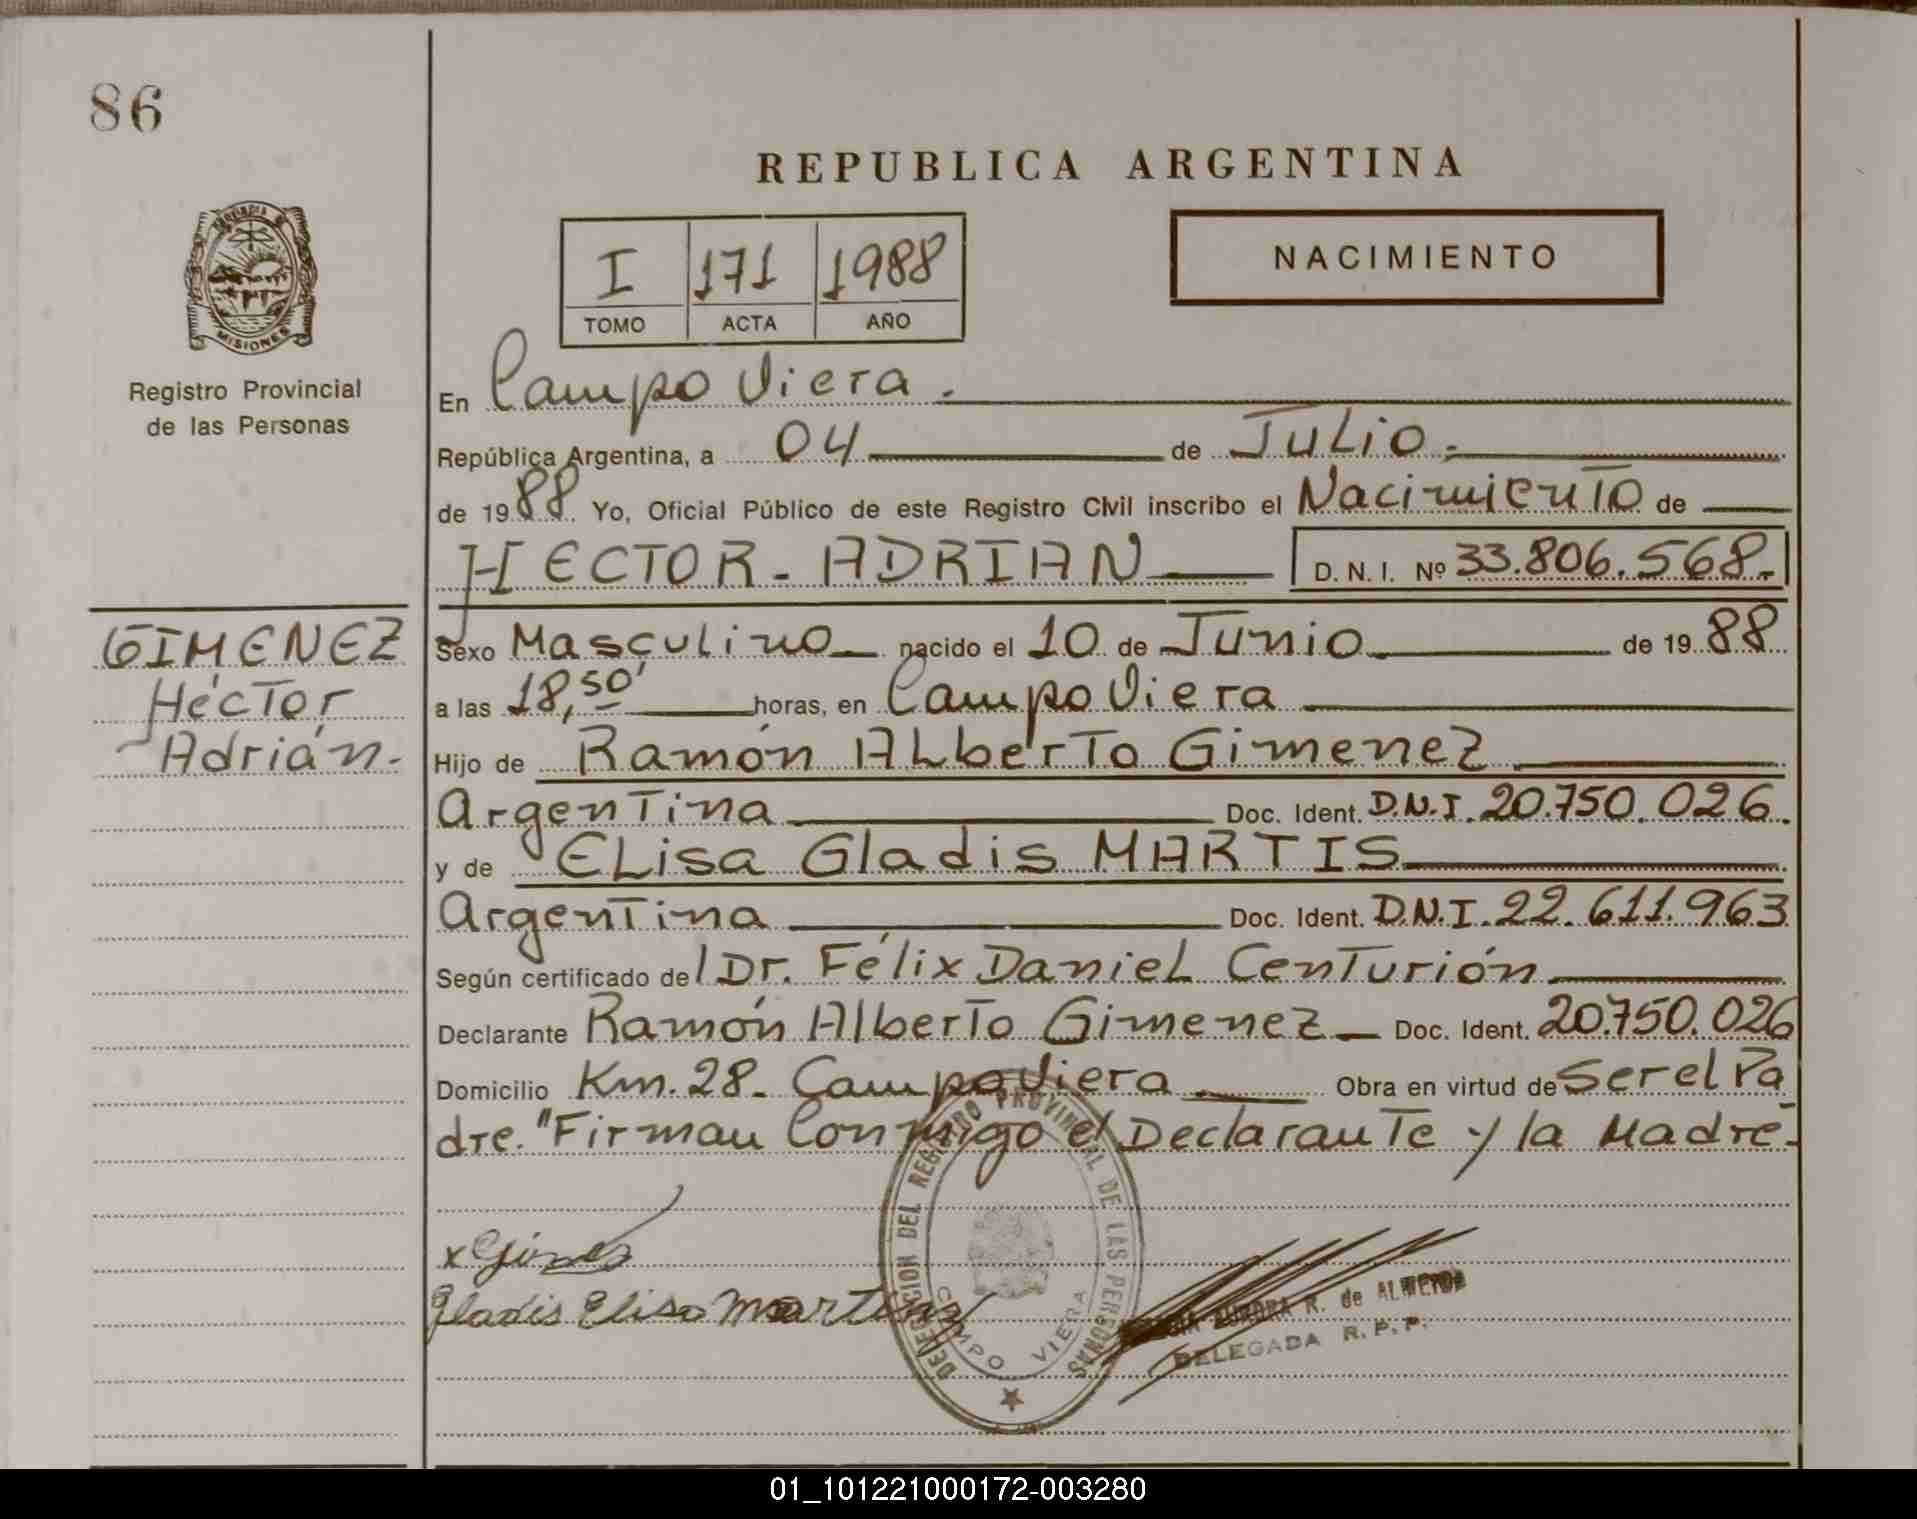 86
REPUBLICA ARGENTINA
MISIONES
Registro Provincial
de las Personas
I 171 1988
TOMO ACTA AÑO
NACIMIENTO
En Campo Viera.
República Argentina, a 04 de Julio.
de 1988 Yo, Oficial Público de este Registro Civil inscribo el Nacimiento de
HECTOR - ADRIAN D. N. I. Nº 33.806.568.-
GIMENEZ
Héctor
Adrián.-
Sexo Masculino nacido el 10 de Junio de 1988
a las 18,50' horas, en Campo Viera
Hijo de Ramón ALberTo Gimenez
Argentina Doc. Ident. D.N.I. 20.750.026.
y de ELisa Gladis MARTIS
Argentina Doc. Ident. D.N.I. 22.611.963
Según certificado del Dr. Félix Daniel Centurión
Declarante Ramón Alberto Gimenez Doc. Ident. 20.750.026
Domicilio Km. 28 - Campo Viera Obra en virtud de Ser el Pa
dre. "Firman Conmigo el Declarante y la Madre.-
x
Gladis Elisa
DELEGACION DEL REGISTRO PROVINCIAL DE LAS PERSONAS
CAMPO VIERA
AURORA R. de ALMEIDA
DELEGADA R. P. P.
01_101221000172-003280